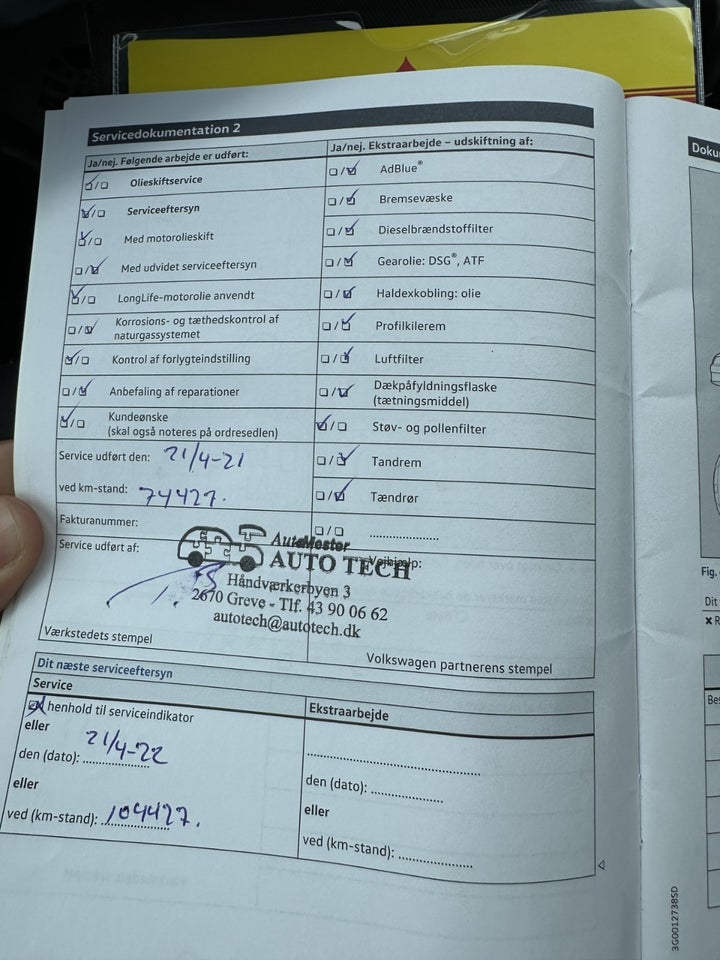 Servicedokumentation 2
Ja/nej. Følgende arbejde er udført:
Olieskiftservice
Serviceeftersyn
Med motorolieskift
Med udvidet serviceeftersyn
LongLife-motorolie anvendt
Korrosions- og tæthedskontrol af
naturgassystemet
Kontrol af forlygteindstilling
Anbefaling af reparationer
Kundeønske
(skal også noteres på ordresedlen)
Service udført den: 21/4-21
ved km-stand: 74427.
Fakturanummer:
Service udført af:
Værkstedets stempel
Ja/nej. Ekstraarbejde – udskiftning af:
AdBlue®
Bremsevæske
Dieselbrændstoffilter
Gearolie: DSG®, ATF
Haldexkobling: olie
Profilkilerem
Luftfilter
Dækpåfyldningsflaske
(tætningsmiddel)
Støv- og pollenfilter
Tandrem
Tændrør
....................
Vejhjælp:
AutoMester
AUTO TECH
Håndværkerbyen 3
2670 Greve - Tlf. 43 90 06 62
autotech@autotech.dk
Volkswagen partnerens stempel
Dit næste serviceeftersyn
Service
henhold til serviceindikator
eller
den (dato): 21/4-22
eller
ved (km-stand): 104427.
Ekstraarbejde
..................................................
den (dato): ....................
eller
ved (km-stand): ....................
3G0012738SD
Doku
Fig.
Dit
Bes